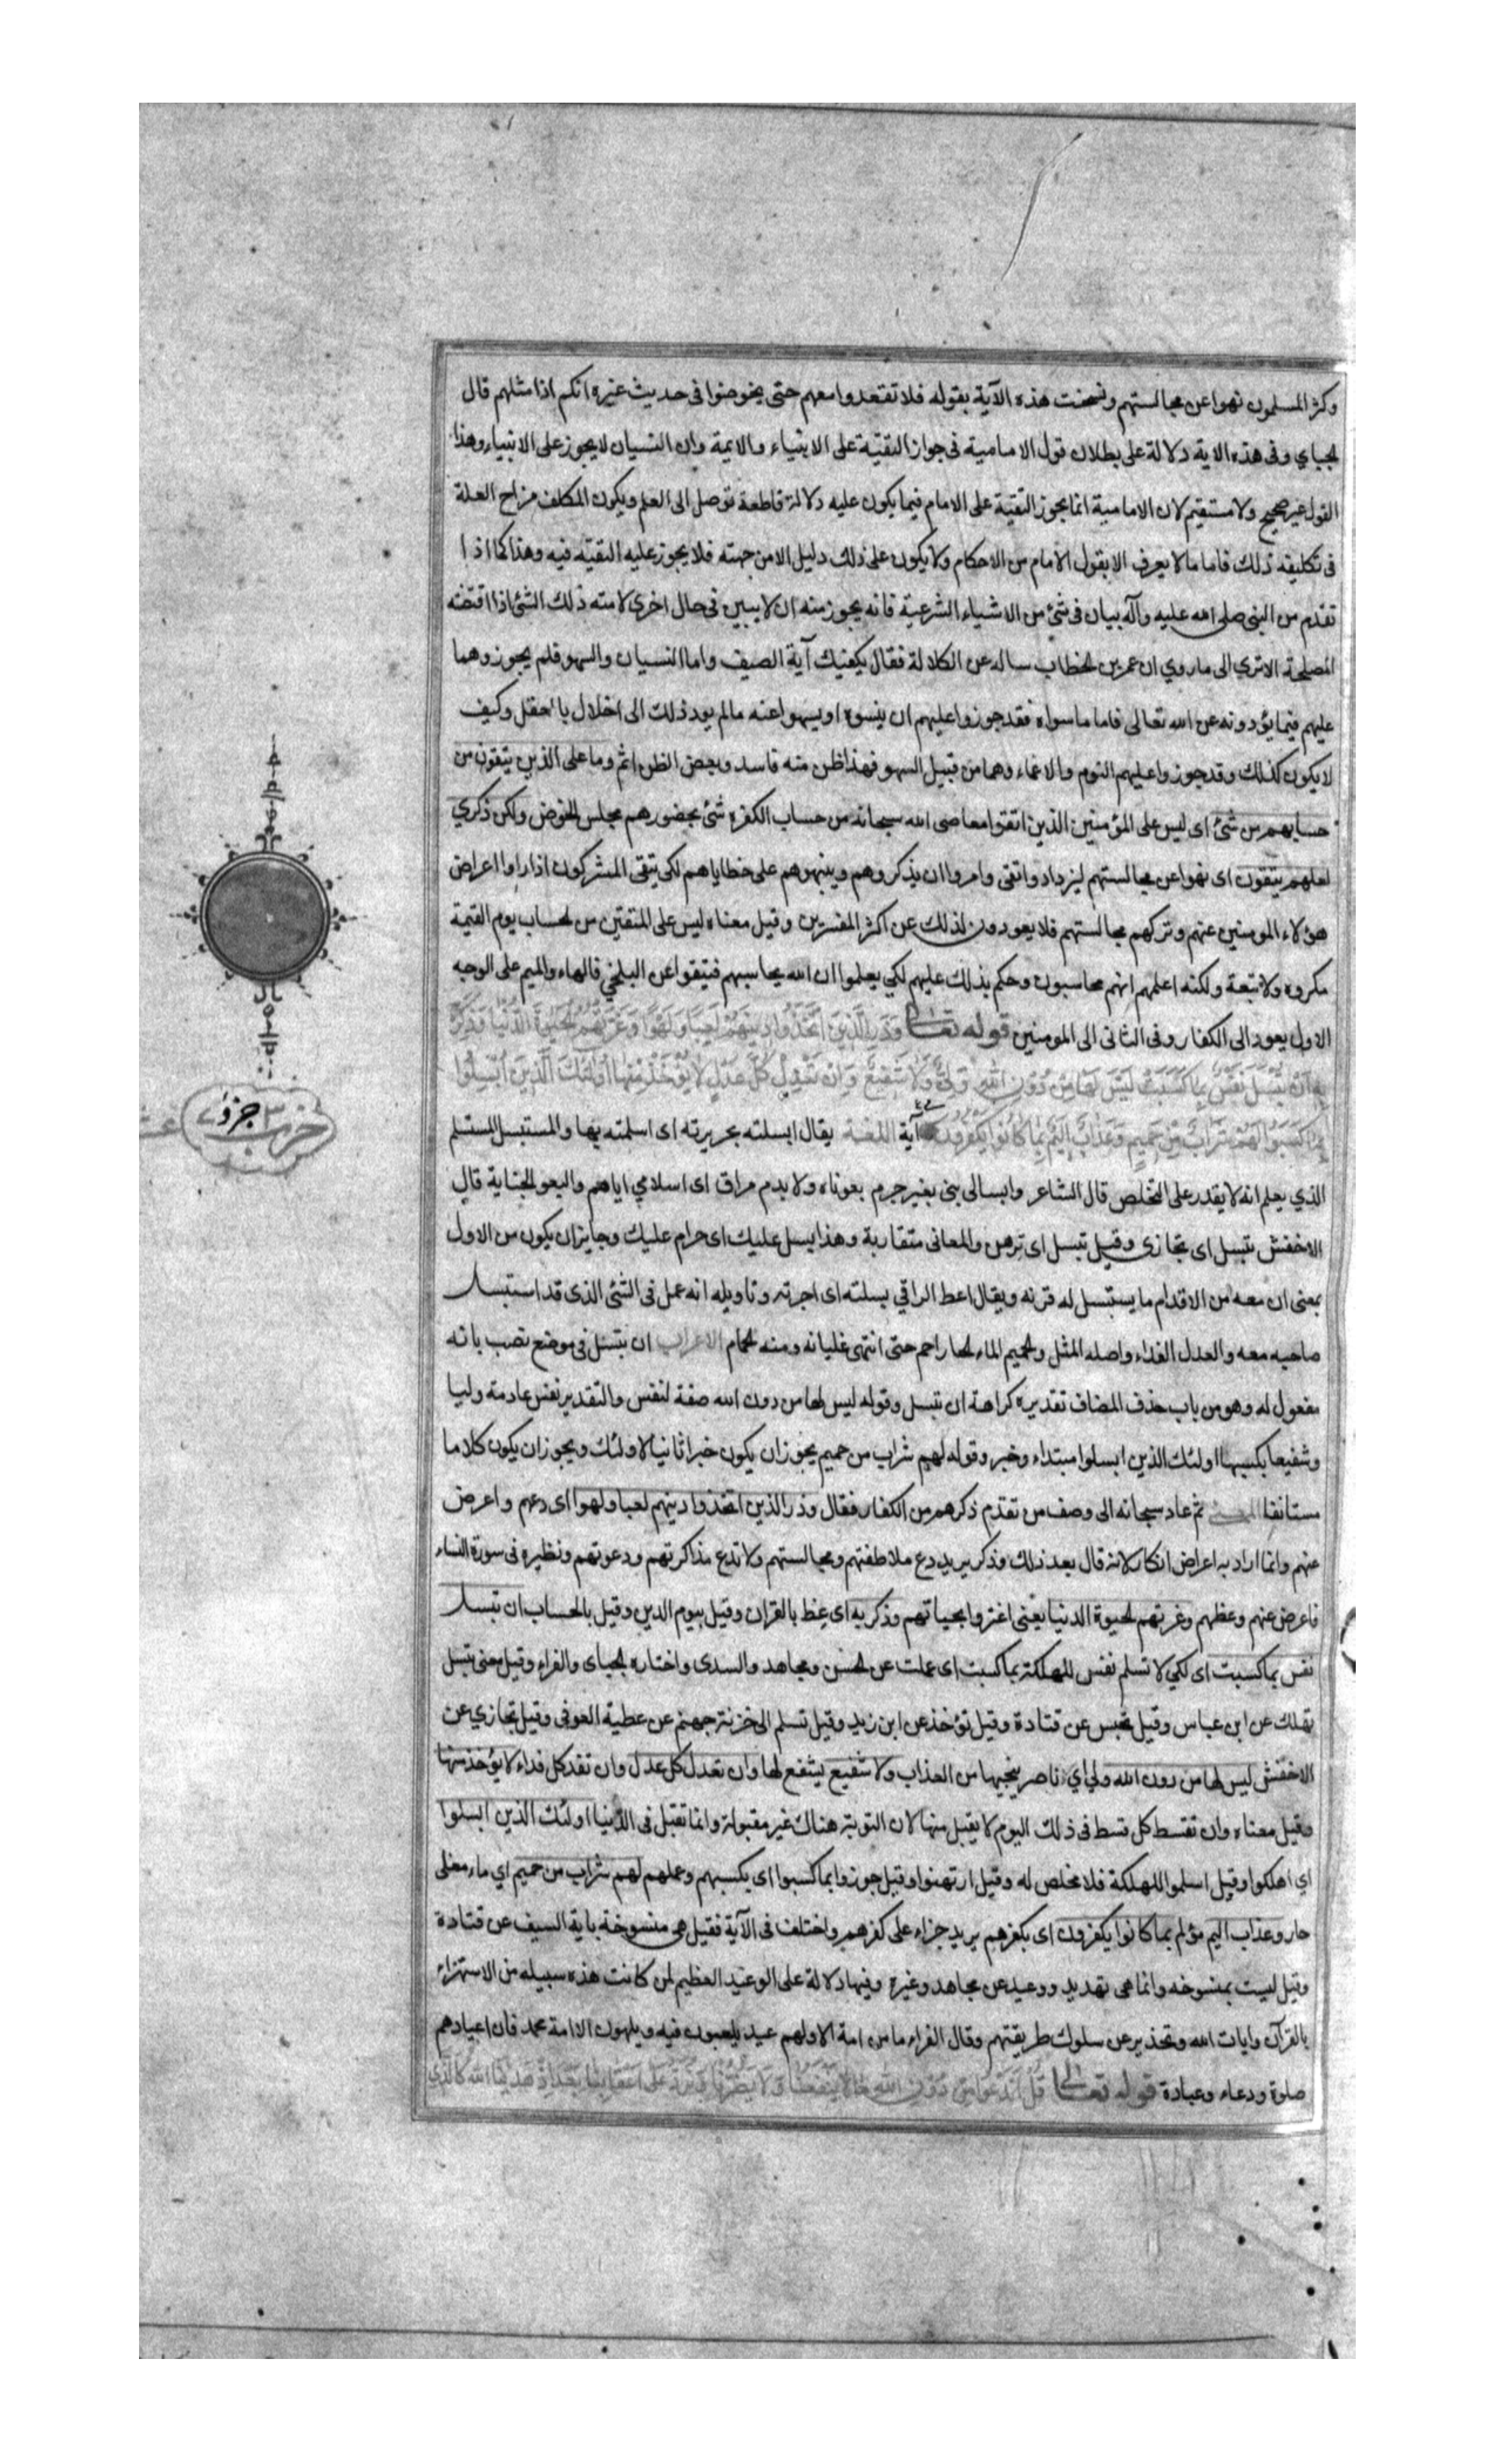 وكثر المسلمون نهوا عن مجالستهم ونسخت هذه الآية بقوله فلا تقعدوا معهم حتى يخوضوا فى حديث غيره انكم اذا مثلهم قال
لجباي وفى هذه الاية دلالة على بطلان قول الامامية فى جواز التقية على الانبياء والايمة وان النسيان لا يجوز على الانبياء وهذا
القول غير صحيح ولا مستقيم لان الامامية انما يجوز التقية على الامام فيما يكون عليه دلالة قاطعة توصل الى العلم ويكون المكلف مزاح العلة
فى تكليفه ذلك فاما ما لا يعرف الا بقول الامام من الاحكام ولا يكون على ذلك دليل الا من جهته فلا يجوز عليه التقية فيه وهذا كما اذا
تقدم من النبى صلى الله عليه وآله بيان فى شئ من الاشياء الشرعية فانه يجوز منه ان لا يبين فى حال اخرى لامته ذلك الشئ اذا اقتضته
المصلحة الا ترى الى ما روي ان عمر بن لخطاب ساله عن الكلالة فقال يكفيك آية الصيف واما النسيان والسهو فلم يجوزوهما
عليهم فيما يؤدونه عن الله تعالى فاما ما سواه فقد جوزوا عليهم ان ينسوه او يسهوا عنه مالم يود ذلك الى اخلال بالعقل وكيف
لا يكون كذلك وقد جوزوا عليهم النوم والاغماء وهما من قبيل السهو فهذا ظن منه فاسد وبعض الظن اثم وما على الذين يتقون من
حسابهم من شئ اى ليس على المؤمنين الذين اتقوا معاصى الله سبحانه من حساب الكفرة شئ بحضورهم مجلس الخوض ولكن ذكري
لعلهم يتقون اى نهوا عن مجالستهم ليزدادوا تقى وامروا ان يذكروهم وينبهوهم على خطاياهم لكى يتقى المشركون اذا راوا اعراض
هؤلاء المومنين عنهم وتركهم مجالستهم فلا يعودون لذلك عن اكثر المفسرين وقيل معناه ليس على المتقين من لحساب يوم القيمة
مكروه ولا تبعة ولكنه اعلمهم انهم محاسبون وحكم بذلك عليهم لكي يعلموا ان الله يحاسبهم فيتقوا عن البلخي فالهاء والميم على الوجه
الاول يعود الى الكفار وفى الثانى الى المومنين قوله تعالى وَذَرِ الَّذِينَ اتَّخَذُوا دِينَهُمْ لَعِبًا وَلَهْوًا وَغَرَّتْهُمُ لْحَيٰوةُ الدُّنْيَا وَذَكِّرْ
بِهِ اَنْ تُبْسَلَ نَفْسٌ بِمَا كَسَبَتْ لَيْسَ لَهَا مِنْ دُوْنِ اللهِ وَلِيٌّ وَلَا شَفِيعٌ وَاِنْ تَعْدِلْ كُلَّ عَدْلٍ لَا يُؤْخَذْ مِنْهَا اُولٰئِكَ الَّذِينَ اُبْسِلُوا
بِمَا كَسَبُوا لَهُمْ شَرَابٌ مِنْ حَمِيمٍ وَعَذَابٌ اَلِيمٌ بِمَا كَانُوا يَكْفُرُونَ آية اللغة يقال ابسلته بجريرته اى اسلمته بها والمستبسل المستسلم
الذي يعلم انه لا يقدر على التخلص قال الشاعر وابسالى بنى بغير جرم بعوناه ولا بدم مراق اى اسلامي اياهم والبعو لجناية قال
الاخفش تبسل اى تجازى وقيل تبسل اى ترهن والمعانى متقاربة وهذا بسل عليك اى حرام عليك وجايز ان يكون من الاول
بمعنى ان معه من الاقدام ما يستبسل له قرنه ويقال اعط الراقي بسلته اى اجرته وتاويله انه عمل فى الشئ الذى قد استبسل
صاحبه معه والعدل الفداء واصله المثل ولحميم الماء لحار احم حتى انتهى غليانه ومنه لحمام الاعراب ان تبسل فى موضع نصب بانه
مفعول له وهو من باب حذف المضاف تقديره كراهة ان تبسل وقوله ليس لها من دون الله صفة لنفس والتقدير نفس عادمة وليا
وشفيعا بكسبها اولئك الذين ابسلوا مبتداء وخبر وقوله لهم شراب من حميم يجوز ان يكون خبرا ثانيا لاولئك ويجوز ان يكون كلاما
مستانفا المعنى ثم عاد سبحانه الى وصف من تقدم ذكرهم من الكفار فقال وذر الذين اتخذوا دينهم لعبا ولهوا اى دعهم واعرض
عنهم وانما اراد به اعراض انكار لانه قال بعد ذلك وذكر يريد دع ملاطفتهم ومجالستهم ولا تدع مذاكرتهم ودعوتهم ونظيره فى سورة النساء
فاعرض عنهم وعظهم وغرتهم لحيوة الدنيا يعنى اغتروا بحياتهم وذكر به اى عظ بالقران وقيل بيوم الدين وقيل بالحساب ان تبسل
نفس بما كسبت اى لكي لا تسلم نفس للهلكة بما كسبت اى عملت عن لحسن ومجاهد والسدى واختاره لجباى والفراء وقيل معنى تبسل
تهلك عن ابن عباس وقيل تحبس عن قتادة وقيل تؤخذ عن ابن زيد وقيل تسلم الى خزنة جهنم عن عطية العوفى وقيل تجازي عن
الاخفش ليس لها من دون الله ولي اي ناصر ينجيها من العذاب ولا شفيع يشفع لها وان تعدل كل عدل وان تفد كل فداء لا يؤخذ منها
وقيل معناه وان تقسط كل قسط فى ذلك اليوم لا يقبل منها لان التوبة هناك غير مقبولة وانما تقبل فى الدنيا اولئك الذين ابسلوا
اي اهلكوا وقيل اسلموا للهلكة فلا مخلص له وقيل ارتهنوا وقيل جوزوا بما كسبوا اى بكسبهم وعملهم لهم شراب من حميم اي ماء مغلى
حار وعذاب اليم مؤلم بما كانوا يكفرون اى بكفرهم يريد جزاء على كفرهم واختلف فى الآية فقيل هى منسوخة باية السيف عن قتادة
وقيل ليست بمنسوخه وانما هى تهديد ووعيد عن مجاهد وغيره وفيها دلالة على الوعيد العظيم لمن كانت هذه سبيله من الاستهزاء
بالقرآن وايات الله وتحذير عن سلوك طريقتهم وقال الفراء ما من امة الا ولهم عيد يلعبون فيه ويلهون الا امة محمد فان اعيادهم
صلوة ودعاء وعبادة قوله تعالى قُلْ اَنَدْعُوا مِنْ دُوْنِ اللهِ مَا لَا يَنْفَعُنَا وَلَا يَضُرُّنَا وَنُرَدُّ عَلٰى اَعْقَابِنَا بَعْدَ اِذْ هَدٰينَا اللهُ كَالَّذِي
حزب ٣ جزو ٧